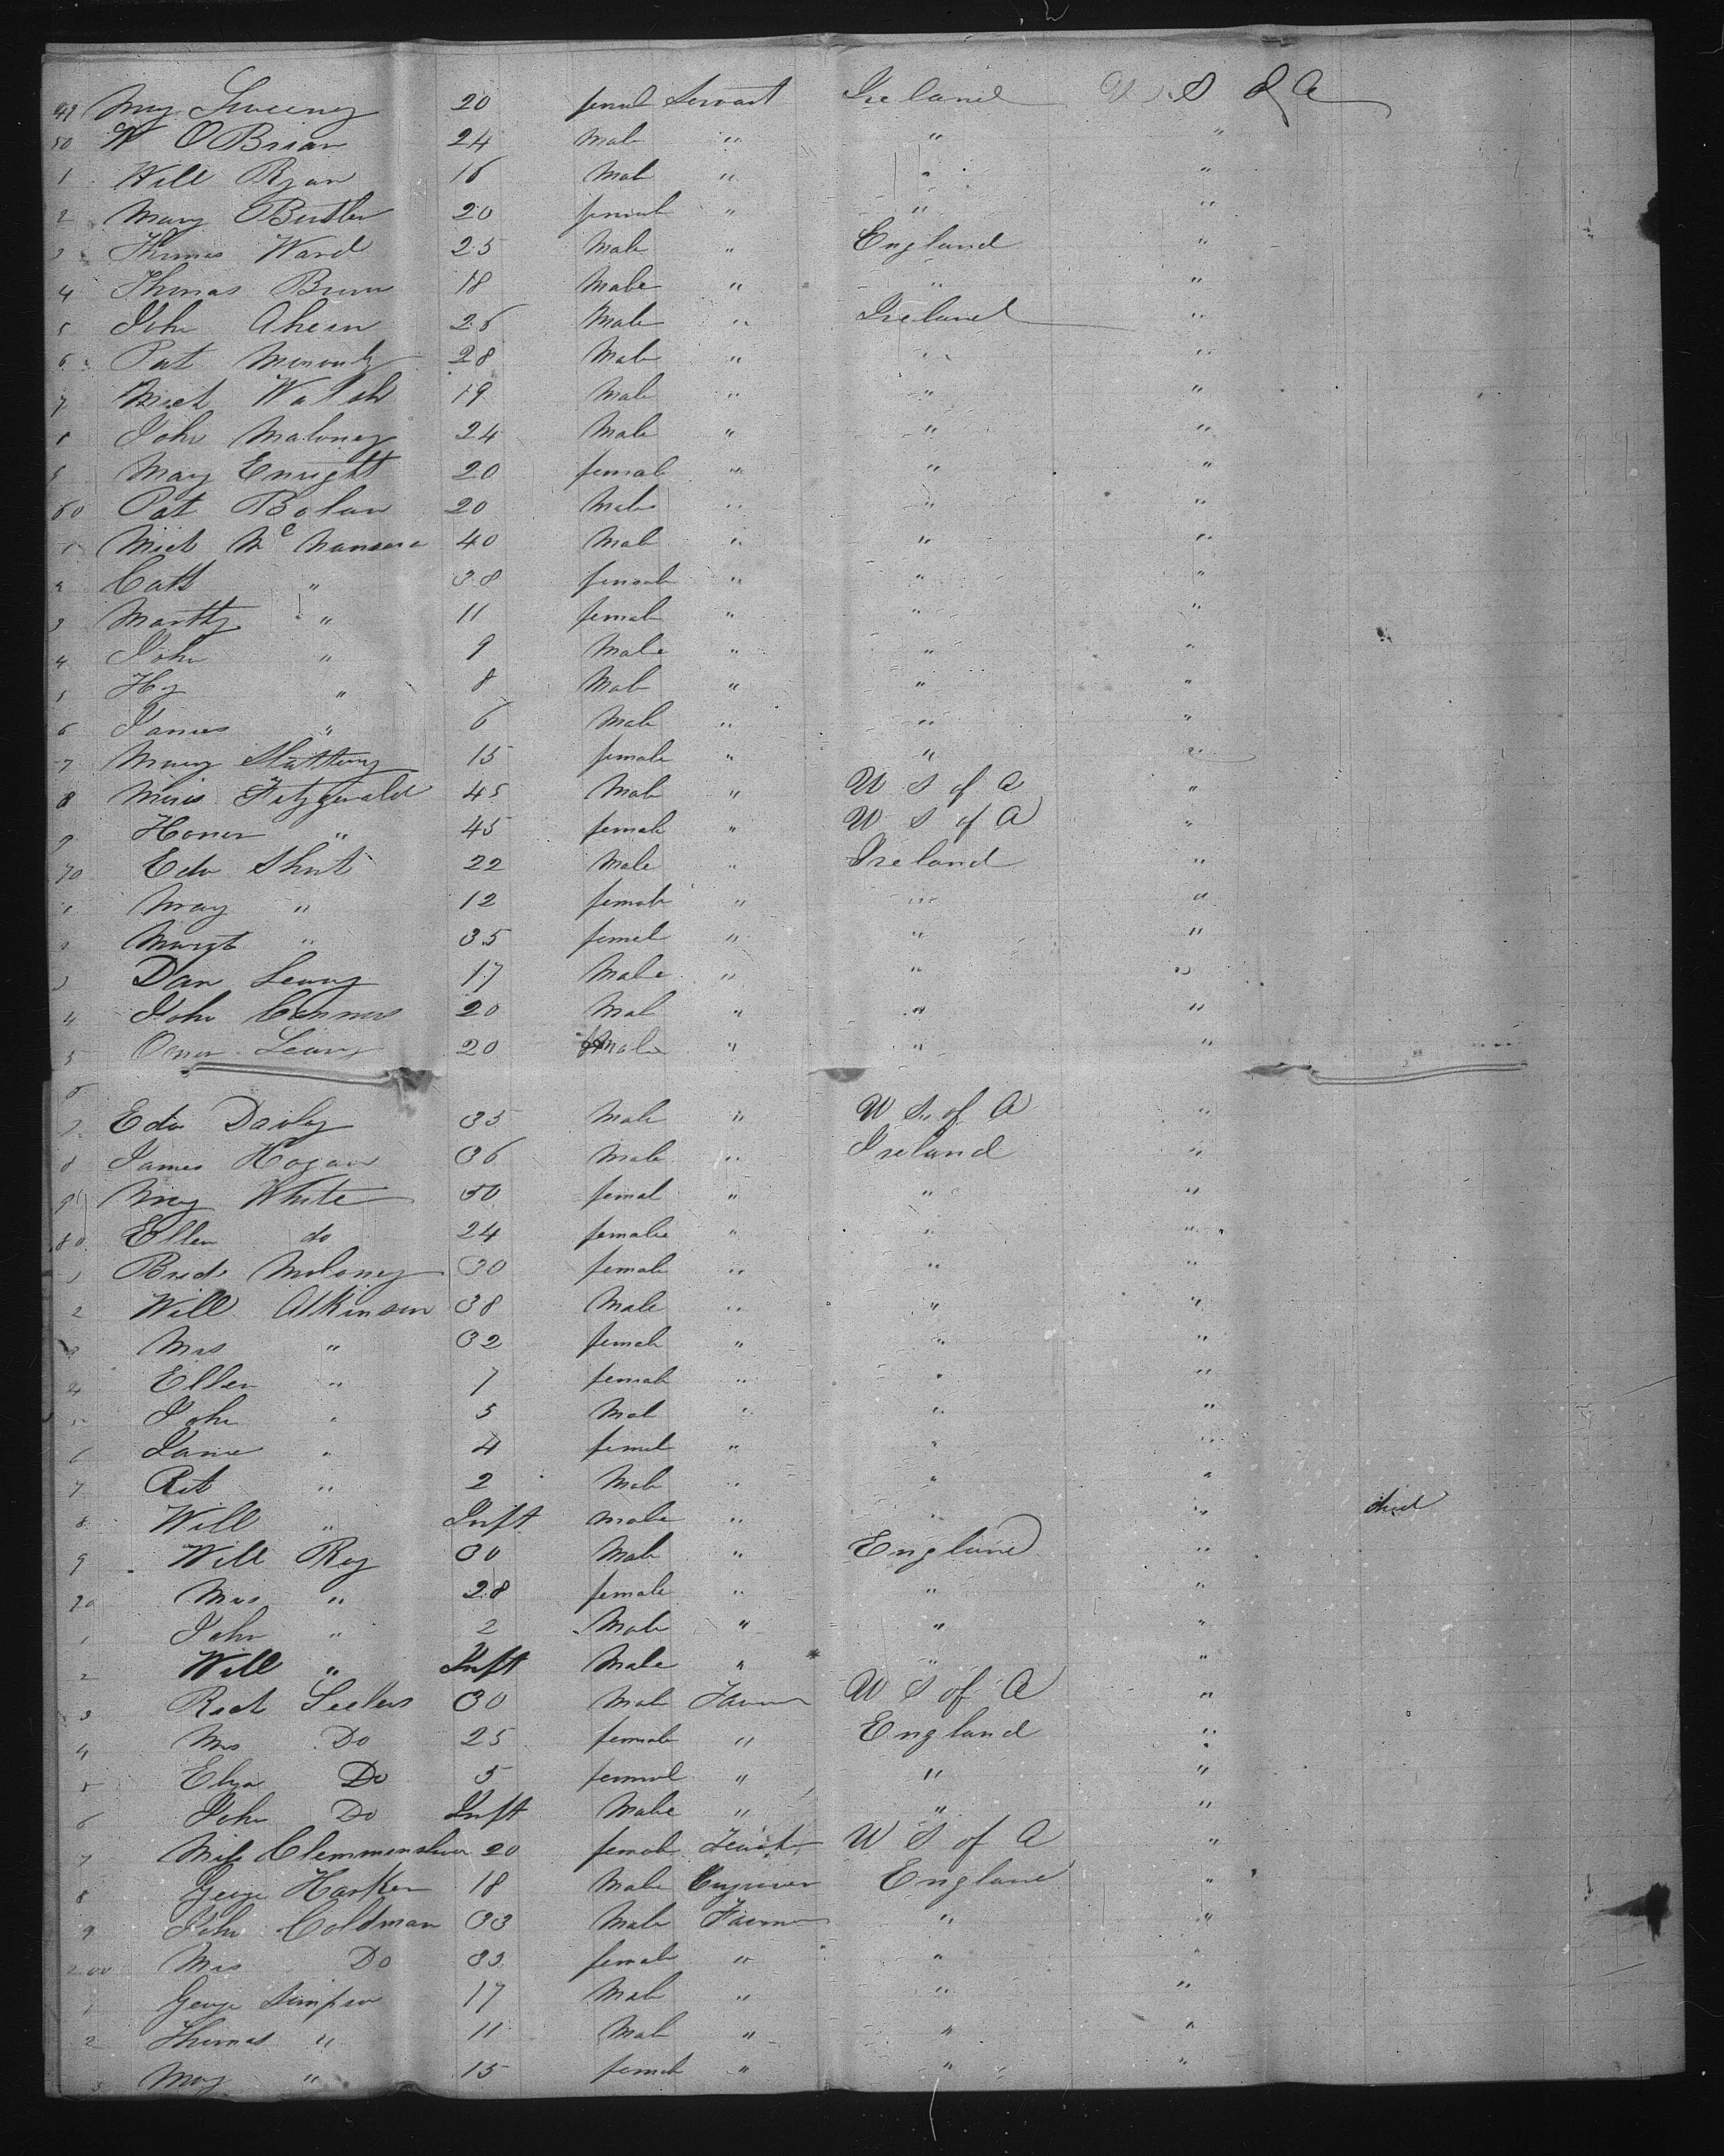 49 Mry Sweeney 20 femal Servant Ireland U S of A
50 W OBrian 24 Male " " "
1 Will Ryan 16 Male " " "
2 Mary Butler 20 female " " "
3 Thomas Ward 25 Male " England "
4 Thomas Brown 18 Male " " "
5 John Ahern 26 Male " Ireland "
6 Pat 28 Male " " "
7 Mich Walsh 19 Male " " "
8 John Maloney 24 Male " " "
9 Mary Enright 20 female " " "
60 Pat Bolan 20 Male " " "
1 Mich Mc Namara 40 Male " " "
2 Cath " 38 female " " "
3 " 11 female " " "
4 John " 9 Male " " "
5 Hy " 8 Male " " "
6 James " 6 Male " " "
7 Mary Slattery 15 female " " "
8 Fitzgerald 45 Male " U S of A "
9 Honor " 45 female " U S of A "
70 Edw 22 Male " Ireland "
1 Mary " 12 female " " "
2 Margt " 35 femal " " "
3 Dan Leary 17 Male " " "
4 John Connors 20 Male " " "
5 Leary 20 " " "
6
7 Edw 35 Male " U S of A "
8 James Hogan 36 Male " Ireland "
9 Mry White 50 femal " " "
80 Ellen do 24 female " " "
1 Brid Moloney 30 female " " "
2 Will Atkinson 38 Male " " "
3 Mrs " 32 female " " "
4 Ellen " 7 female " " "
5 John " 5 Male " " "
6 Jane " 4 femal " " "
7 " 2 Male " " "
8 Will " Inft male " " " died
9 Will Roy 30 Male " England "
90 Mrs " 28 female " " "
1 John " 2 Male " " "
2 Will " Inft Male " " "
3 Seelers 30 Male Farmer U S of A "
4 Mrs Do 25 female " England "
5 Eliza Do 5 femal " " "
6 John Do Inft Male " " "
7 Miss 20 female U S of A "
8 George Harker 18 Male England "
9 John Coldman 33 Male Farmer " "
200 Mrs Do 33 female " " "
1 George Simpson 17 Male " " "
2 Thomas " 11 Male " " "
3 Mary " 15 female " " "